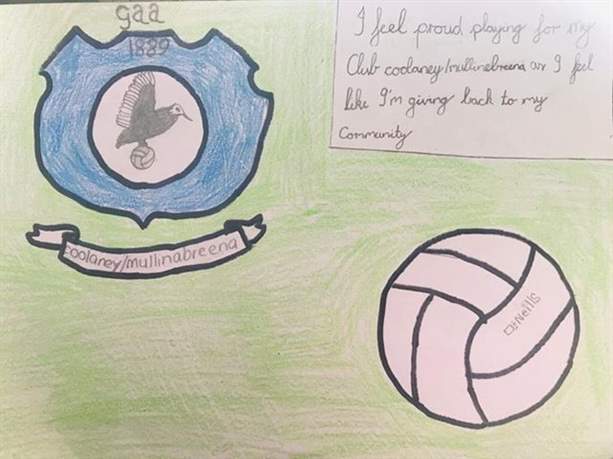 gaa
1889
coolaney/mullinabreena
I feel proud playing for my
Club coolaney/mullinabreena as I feel
like I'm giving back to my
Community
O'Neills